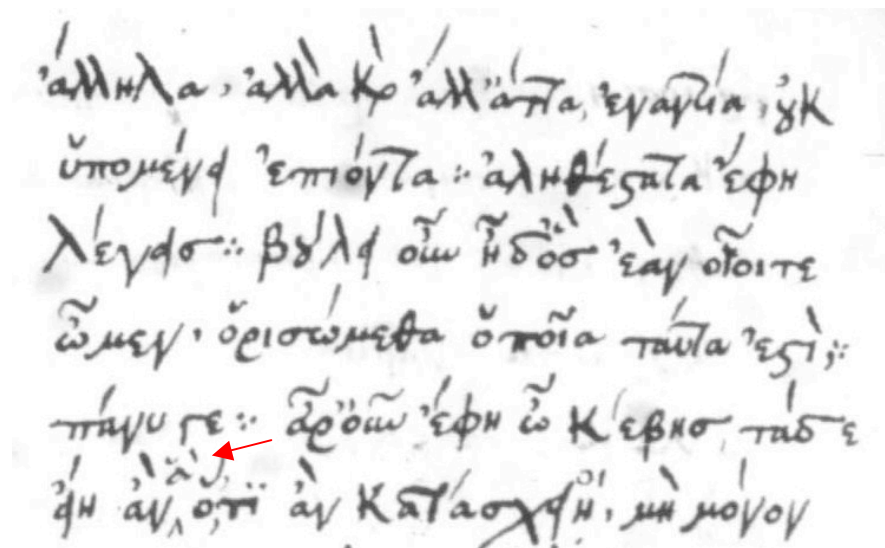 ἄλληλα, ἀλλὰ καὶ ἄλλ' ἄττα, ἐναντία, οὐκ
ὑπομένει ἐπιόντα :· ἀληθέστατα ἔφη
λέγεις :· βούλει οὖν ἦ δ' ὃς ἐὰν οἷοι τε
ὦμεν· ὁρισώμεθα ὁποῖα ταῦτα ἐστὶ; :·
πάνυ γε :· ἆρ' οὖν ἔφη ὦ κέβης, τάδε
εἴη ἂν ἃ ὅτι ἂν μὴ μόνον